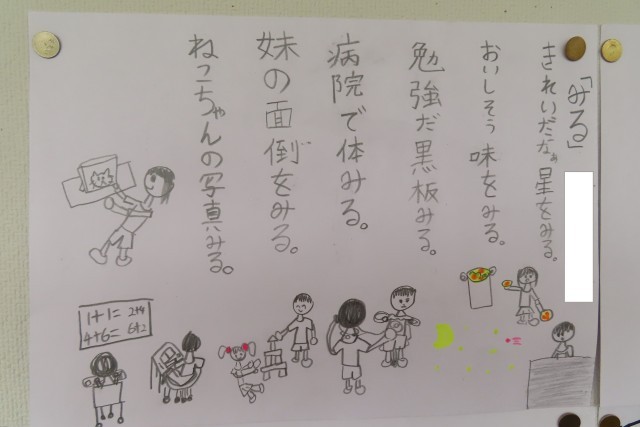 「みる」
きれいだなぁ星をみる。
おいしそう味をみる。
勉強だ黒板みる。
病院で体みる。
妹の面倒をみる。
ねこちゃんの写真みる。
1+1= 2+4
4+6= 6+2